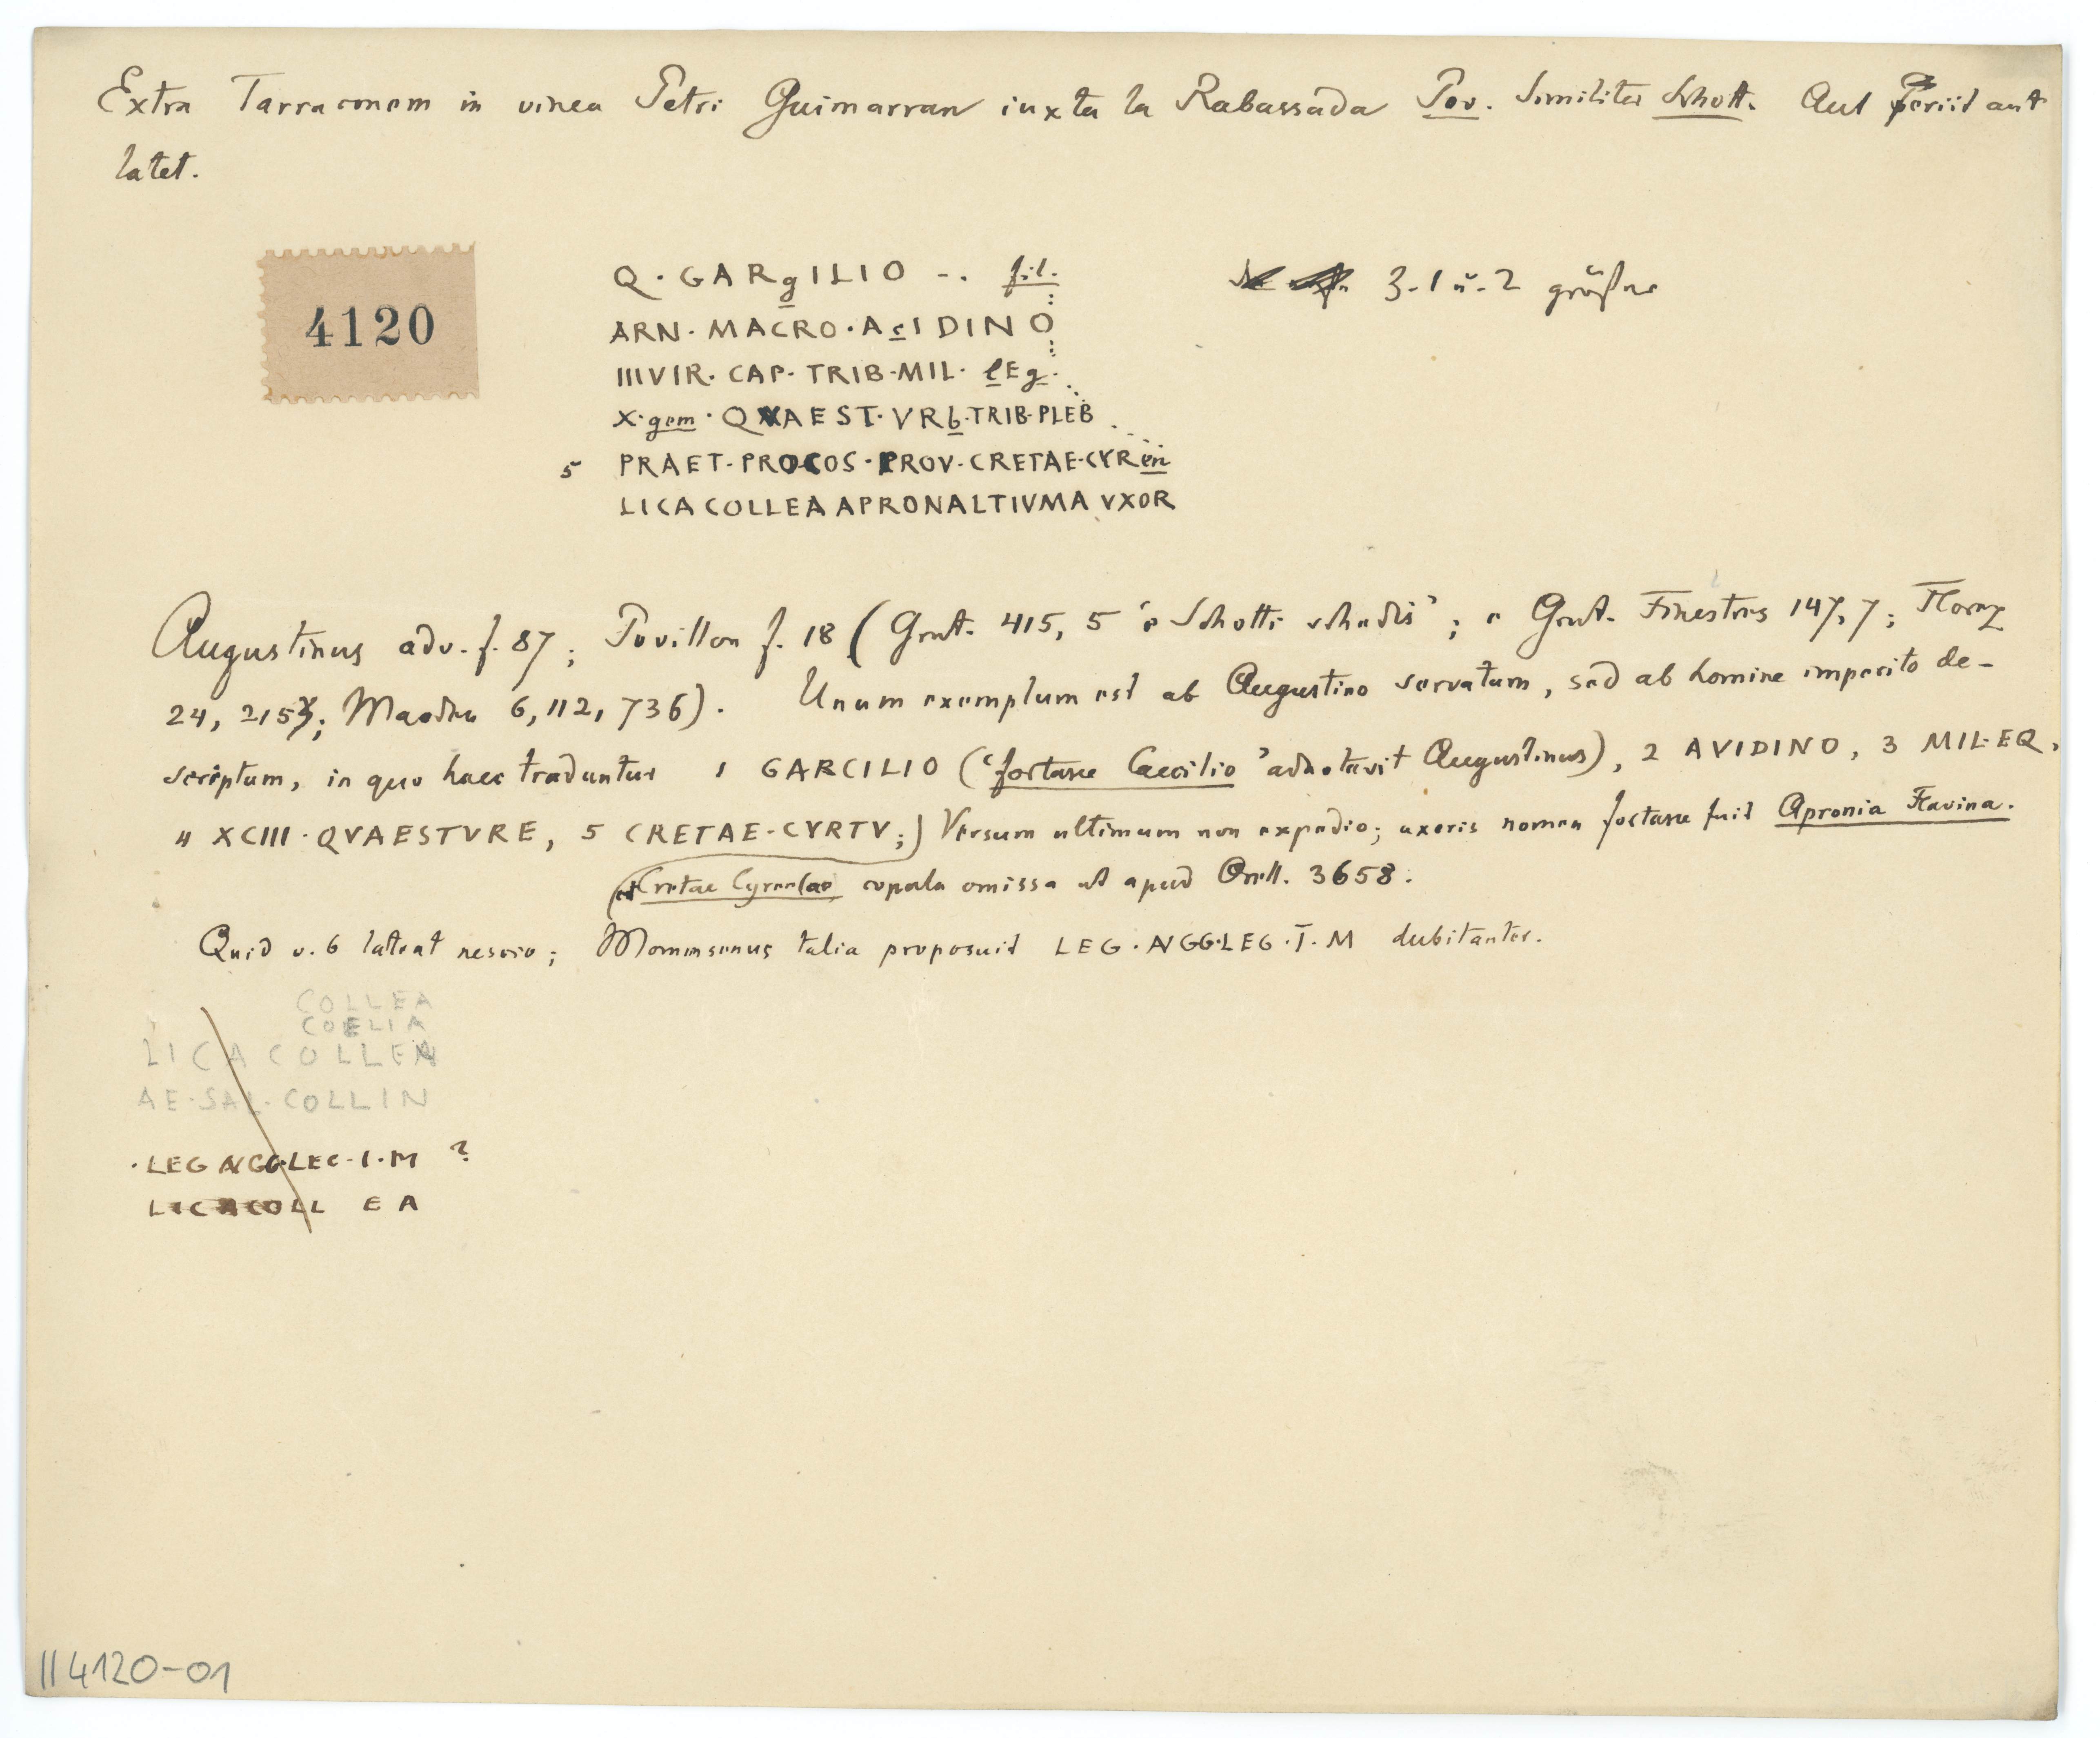 Extra Tarraconem in vinea Petri Guimarran iuxta la Rabassada Pov. Similiter Schott. Aut periit aut
latet.
4120
Q · GARgILIO -. fil.
3. 1 u. 2 größer
ARN · MACRO · AcIDINO
IIIVIR · CAP · TRIB · MIL · lEg.
X · gem · QVAEST · VRb · TRIB · PLEB
5 PRAET · PROCOS · PROV · CRETAE · CYRen
LICA COLLEA APRONALTIVMA VXOR
Augustinus adv. f. 87; Povillon f. 18 (Grut. 415, 5 'e Schotti schedis'; e Grut. Finestres 147, 7; Florez
24, 215; Masdeu 6, 112, 736). Unum exemplum est ab Augustino servatum, sed ab homine imperito de-
scriptum, in quo haec traduntur 1 GARCILIO ('fortasse Caecilio' adnotavit Augustinus), 2 AVIDINO, 3 MIL·EQ,
4 XCIII · QVAESTVRE, 5 CRETAE · CYRTV;) Versum ultimum non expedio; uxoris nomen fortasse fuit Apronia Flavina.
Cretae Cyrenae copula omissa ut apud Orell. 3658.
Quid v. 6 lateat nescio; Mommsenus talia proposuit LEG · AVGG · LEG · I · M dubitanter.
COLLEA
COELIA
LICA COLLEA
AE · SAL · COLLIN
· LEG AVGG LEG · I · M ?
LICACOLL EA
II 4120-01